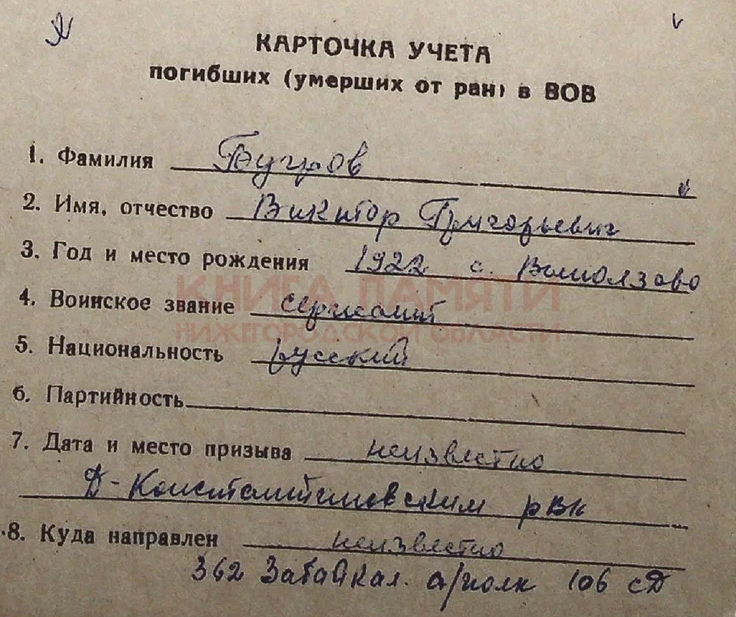 КАРТОЧКА УЧЕТА
погибших (умерших от ран) в ВОВ
1. Фамилия Бугров
2. Имя, отчество Виктор Григорьевич
3. Год и место рождения 1922 с.
КНИГА ПАМЯТИ
4. Воинское звание сержант
НИЖЕГОРОДСКОЙ ОБЛАСТИ
5. Национальность русский
6. Партийность
7. Дата и место призыва неизвестно
Д-Константиновским РВК
8. Куда направлен неизвестно
362 Забайкал. а/полк 106 сД